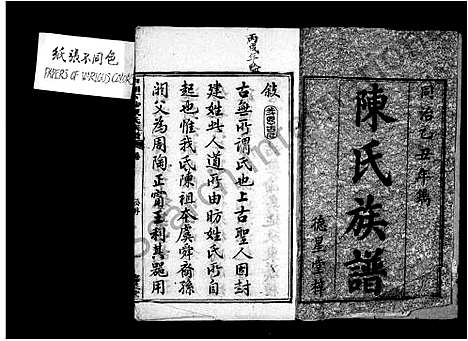 同治乙丑年鐫
陳氏族譜
德星堂梓
敘
古無所謂氏也上古聖人因封
建姓此人道所由昉姓氏所自
起也惟我氏陳祖本虞舜裔孫
閼父為周陶正賓王利其器用
紙張不同色
PAPERS OF VARIOUS COLOR